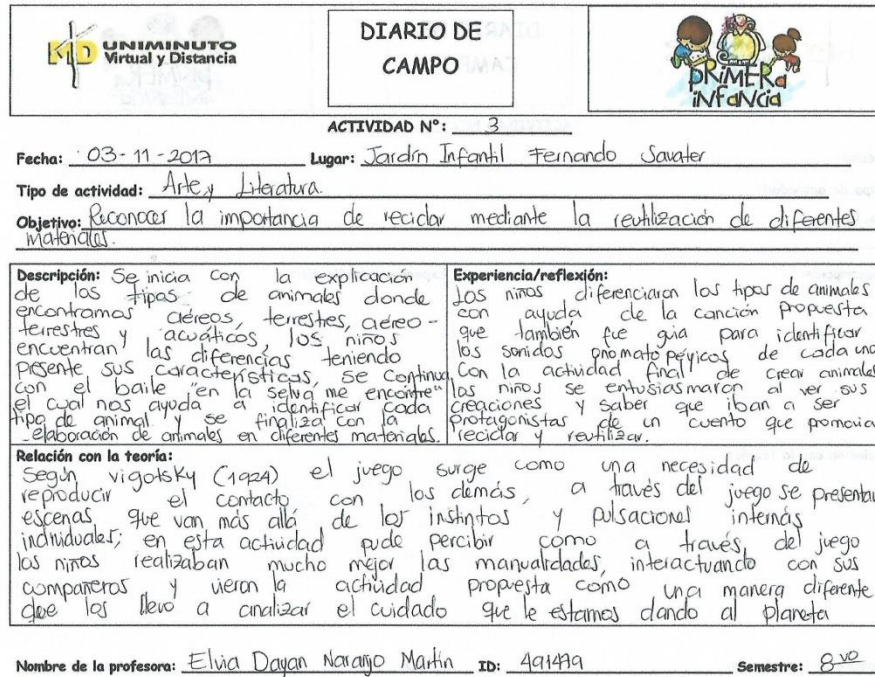 UNIMINUTO
Virtual y Distancia
DIARIO DE
CAMPO
PRiMERa
iNFaNCia
ACTIVIDAD N°: 3
Fecha: 03-11-2017 Lugar: Jardín Infantil Fernando Savater
Tipo de actividad: Arte y Literatura.
Objetivo: Reconocer la importancia de reciclar mediante la reutilización de diferentes
materiales.
Descripción: Se inicia con la explicación
de los tipos de animales donde
encontramos aéreos, terrestres, aéreo-
terrestres y acuáticos, los niños
encuentran las diferencias teniendo
presente sus características, se continua
con el baile "en la selva me encontre"
el cual nos ayuda a identificar cada
tipo de animal y se finaliza con la
elaboración de animales en diferentes materiales.
Experiencia/reflexión:
Los niños diferenciaron los tipos de animales
con ayuda de la canción propuesta
que también fue guia para identificar
los sonidos onomatopéyicos de cada uno
Con la actividad final de crear animales
los niños se entusiasmaron al ver sus
creaciones y saber que iban a ser
protagonistas de un cuento que promovia
reciclar y reutilizar.
Relación con la teoría:
Según vigotsky (1924) el juego surge como una necesidad de
reproducir el contacto con los demás, a través del juego se presentan
escenas que van más allá de los instintos y pulsaciones internas
individuales; en esta actividad pude percibir como a través del juego
los niños realizaban mucho mejor las manualidades, interactuando con sus
compañeros y vieron la actividad propuesta como una manera diferente
que los llevo a analizar el cuidado que le estamos dando al planeta
Nombre de la profesora: Elvia Dayan Naranjo Martin ID: 491479 Semestre: 8vo